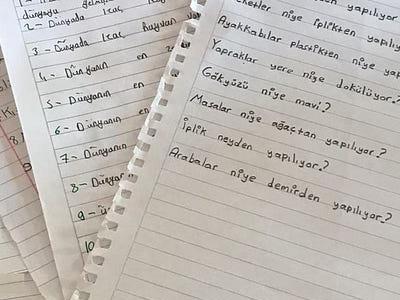 dünyaya
2- Dünyada kaç
3- Dünyada kaç hayvan
4- Dünyanın en
5- Dünyanın en
6- Dünyanın en
7- Dünyanın
8- Dünya
9-
10
niye iplikten yapılıyor
Ayakkabılar plastikten niye
Yapraklar yere niye dökülüyor?
Gökyüzü niye mavi?
Masalar niye ağaçtan yapılıyor?
İplik neyden yapılıyor?
Arabalar niye demirden yapılıyor?